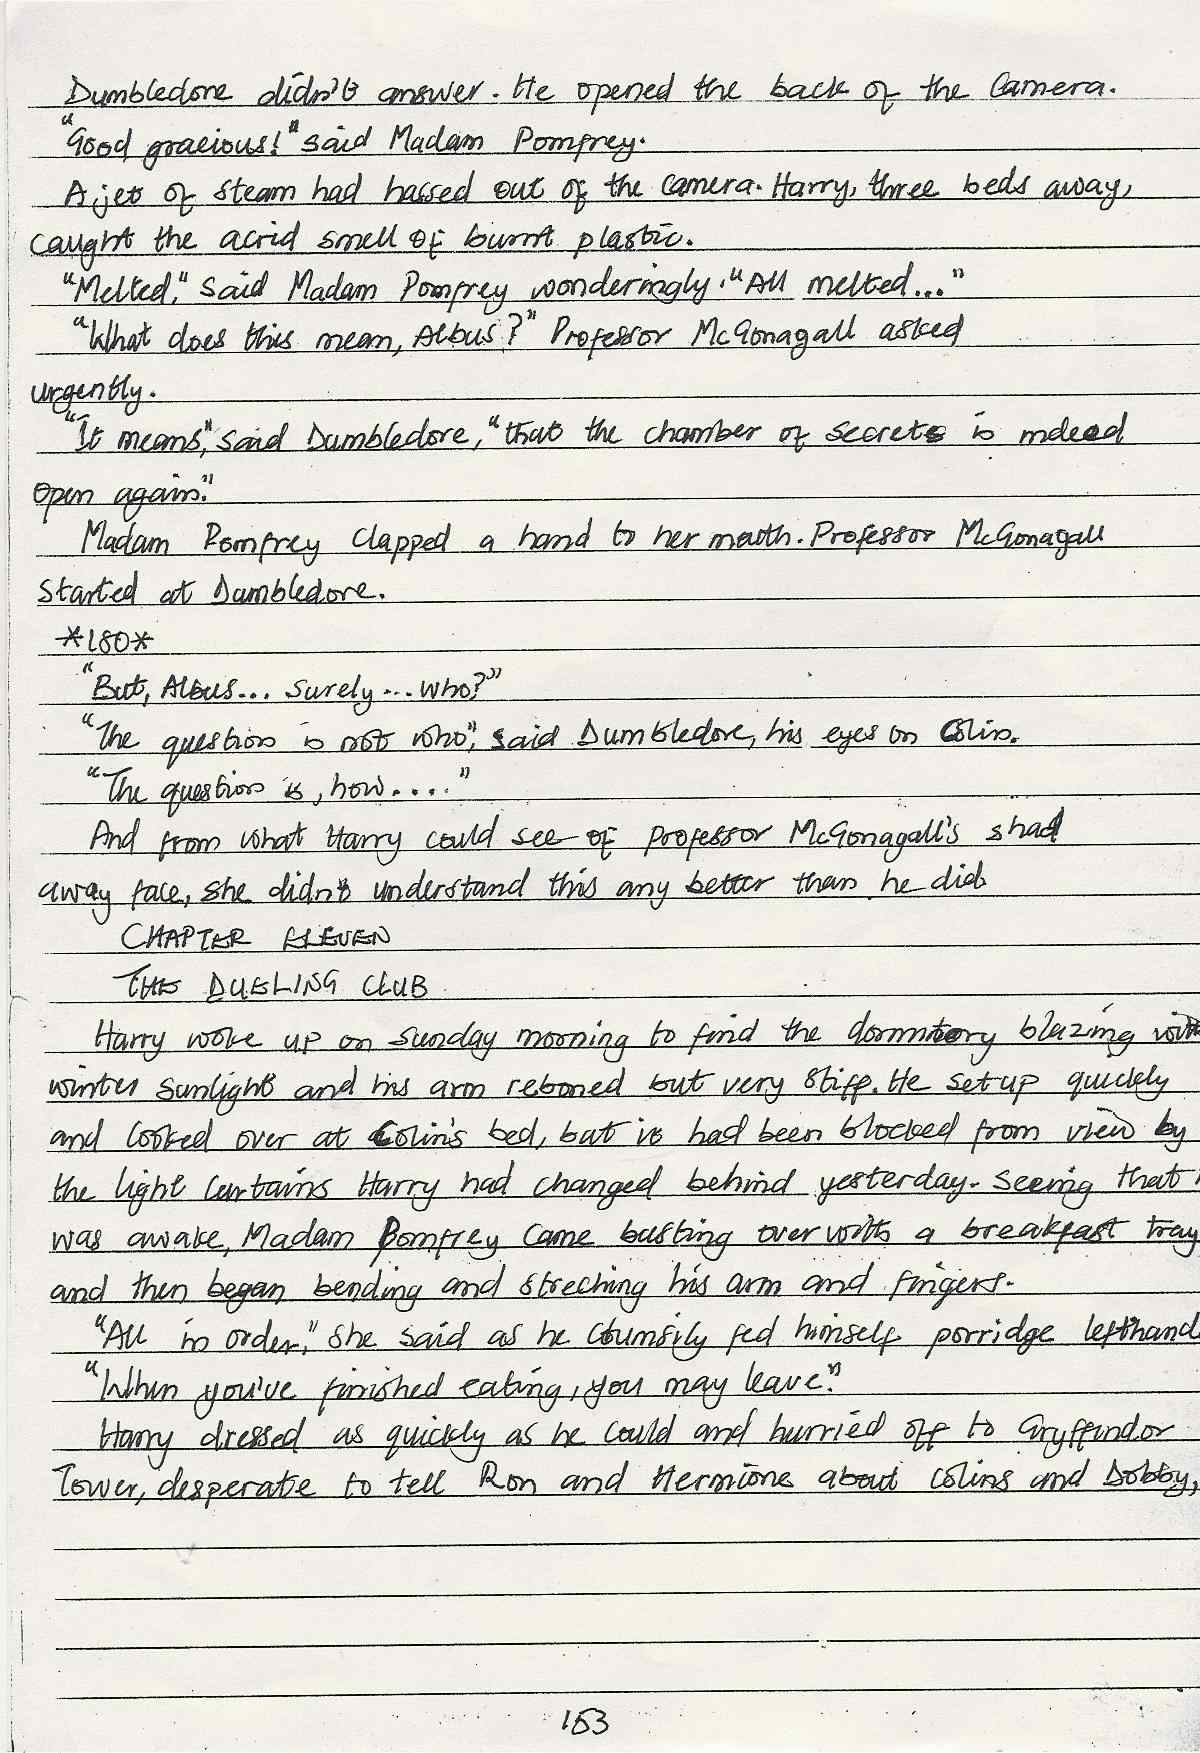 Dumbledore didn't answer. He opened the back of the Camera.
"Good gracious!" said Madam Pomfrey.
A jet of steam had hassed out of the camera. Harry, three beds away,
caught the acrid smell of burnt plastic.
"Melted," said Madam Pomfrey wonderingly. "All melted..."
"What does this mean, Albus?" Professor McGonagall asked
urgently.
"It means," said Dumbledore, "that the chamber of secrets is indeed
open again."
Madam Pomfrey clapped a hand to her mouth. Professor McGonagall
started at Dumbledore.
*180*
"But, Albus... surely... who?"
"The question is not who", said Dumbledore, his eyes on Colin.
"The question is, how...."
And from what Harry could see of professor McGonagall's shad
away face, she didn't understand this any better than he did
CHAPTER ELEVEN
THE DUELING CLUB
Harry woke up on Sunday morning to find the dormitory blazing with
winter sunlight and his arm reboned but very stiff. He set up quickly
and looked over at Colin's bed, but it had been blocked from view by
the light curtains Harry had changed behind yesterday. Seeing that
was awake, Madam Pomfrey came busting over with a breakfast tray
and then began bending and streching his arm and fingers.
"All in order," she said as he clumsily fed himself porridge lefthand
"When you've finished eating, you may leave."
Harry dressed as quickly as he could and hurried off to Gryffindor
Tower, desperate to tell Ron and Hermione about Colins and Dobby,
153